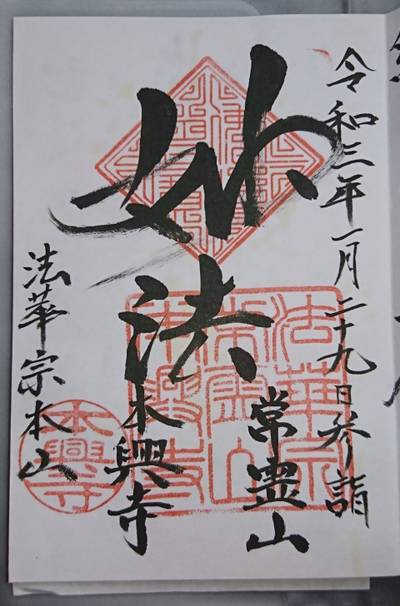 令和三年一月二十九日参詣
妙法
常霊山
本興寺
法華宗本山
本興寺